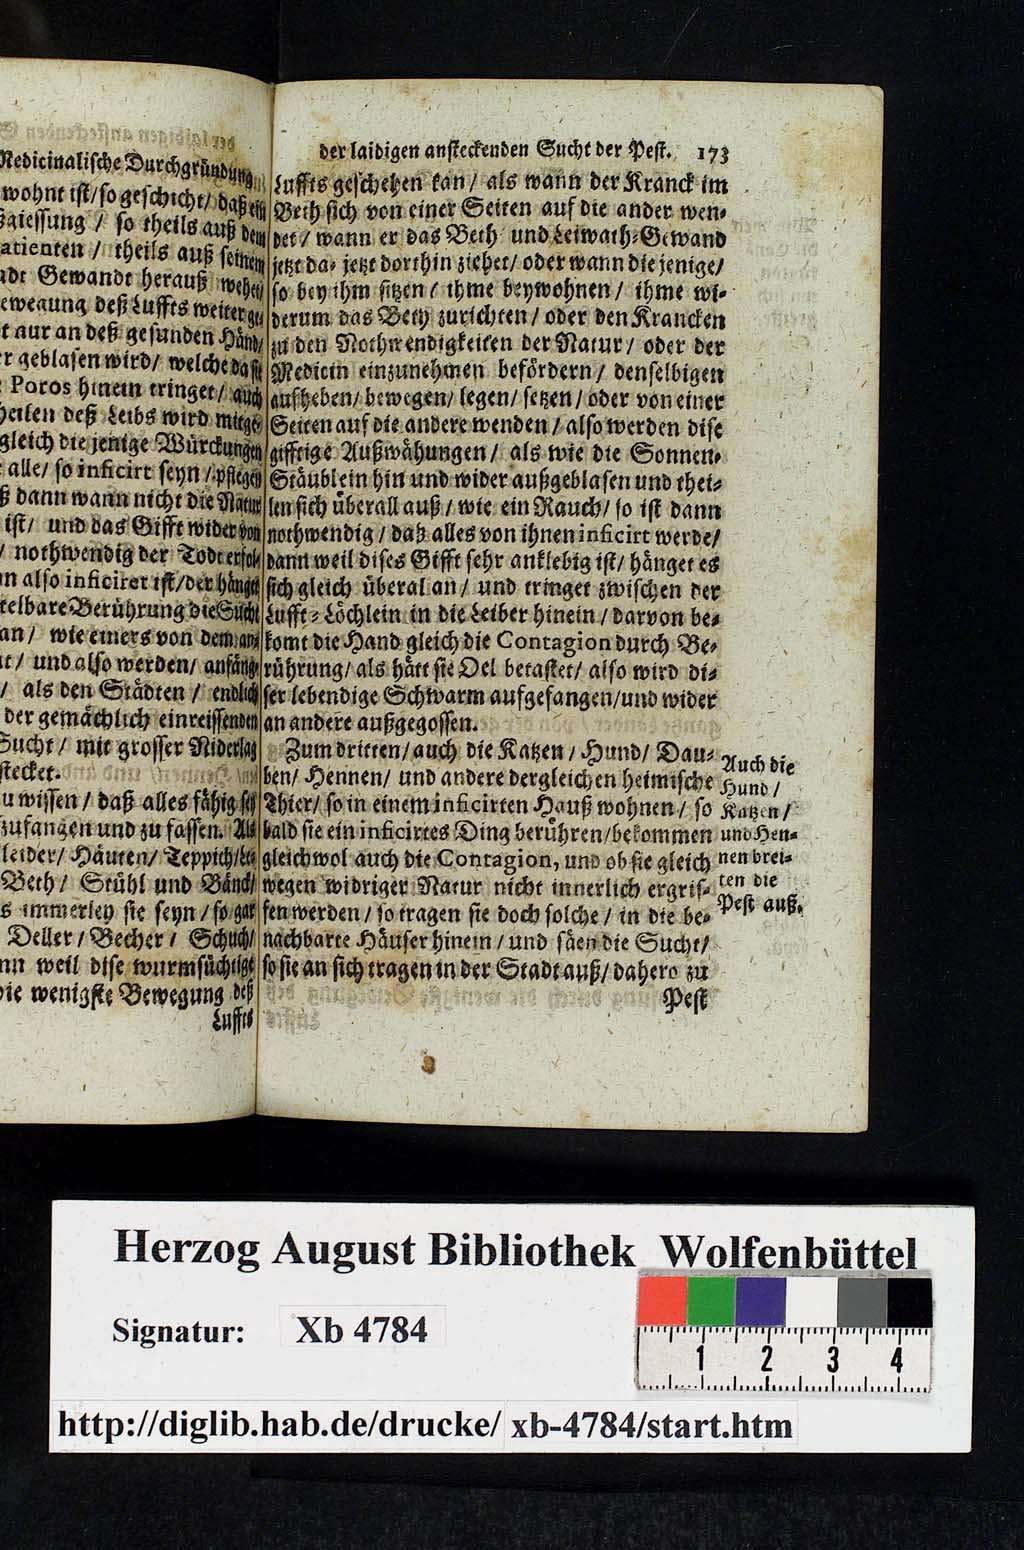 Medicinalische Durchgründung
wohnt ist/ so geschicht/ daß ein
giessung / so theils auß dem
atienten / theils auß seinem
Gewandt herauß wehet/
ewegung deß Luffts weiter ge-
t nur an deß gesunden Händ/
r geblasen wird/ welche da sie
Poros hinein tringet/ auch
heilen deß Leibs wird mitge-
gleich die jenige Würckungen
alle/ so inficirt seyn / pflegen
ß dann wann nicht die Natur
ist/ und das Gifft wider von
/ nothwendig der Todt erfol-
n also inficiret ist/ der hänget
telbare Berührung die Sucht
an/ wie einers von dem an-
t/ und also werden/ anfäng-
/ als den Städten / endlich
der gemächlich einreissenden
Sucht/ mit grosser Niderlag
stecket.
u wissen/ daß alles fähig sey
zufangen und zu fassen. Als
leider/ Häuten/ Teppich/ Lei-
Beth/ Stühl und Bänck/
s immerley sie seyn/ so gar
Deller/ Becher / Schuch/
nn weil dise wurmsüchtige
ie wenigste Bewegung deß
Luffts
der laidigen ansteckenden Sucht der Pest. 173
Luffts geschehen kan/ als wann der Kranck im
Beth sich von einer Seiten auf die ander wen-
det/ wann er das Beth und Leiwath-Gewand
jetzt da- jetzt dorthin ziehet/ oder wann die jenige/
so bey ihm sitzen / ihme beywohnen / ihme wi-
derum das Beth zurichten/ oder den Krancken
zu den Nothwendigkeiten der Natur/ oder der
Medicin einzunehmen befördern/ denselbigen
aufheben/ bewegen/ legen/ setzen/ oder von einer
Seiten auf die andere wenden/ also werden dise
gifftige Außwähungen/ als wie die Sonnen-
Stäublein hin und wider außgeblasen und thei-
len sich überall auß/ wie ein Rauch/ so ist dann
nothwendig/ daß alles von ihnen inficirt werde/
dann weil dises Gifft sehr anklebig ist/ hänget es
sich gleich überal an/ und tringet zwischen der
Lufft-Löchlein in die Leiber hinein/ darvon be-
komt die Hand gleich die Contagion durch Be-
rührung/ als hätt sie Oel betastet/ also wird di-
ser lebendige Schwarm aufgefangen/ und wider
an andere außgegossen.
Zum dritten/ auch die Katzen/ Hund/ Dau-
ben/ Hennen/ und andere dergleichen heimische
Thier/ so in einem inficirten Hauß wohnen/ so
bald sie ein inficirtes Ding berühren/ bekommen
gleichwol auch die Contagion, und ob sie gleich
wegen widriger Natur nicht innerlich ergrif-
fen werden/ so tragen sie doch solche/ in die be-
nachbarte Häuser hinein/ und säen die Sucht/
so sie an sich tragen in der Stadt auß/ dahero zu
Pest
Auch die
Hund/
Katzen/
und Hen-
nen brei-
ten die
Pest auß.
Herzog August Bibliothek Wolfenbüttel
Signatur: Xb 4784
1 2 3 4
http://diglib.hab.de/drucke/ xb-4784/start.htm